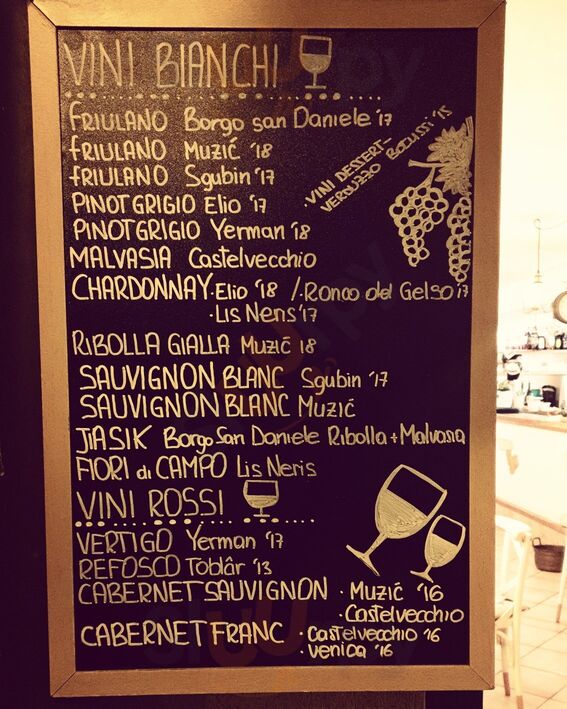 VINI BIANCHI
FRIULANO Borgo san Daniele '17
FRIULANO Muzič '18
FRIULANO Sgubin '17
PINOT GRIGIO Elio '17
PINOT GRIGIO Yerman '18
MALVASIA Castelvecchio
CHARDONNAY · Elio '18 / · Ronco del Gelso '17
· Lis Neris '17
RIBOLLA GIALLA Muzič 18
SAUVIGNON BLANC Sgubin '17
SAUVIGNON BLANC Muzič
JIASIK Borgo San Daniele Ribolla + Malvasia
FIORI di CAMPO Lis Neris
· VINI DESSERT -
VERDUZZO Bocussi '15
VINI ROSSI
VERTIGO Yerman '17
REFOSCO Toblâr '13
CABERNET SAUVIGNON · Muzič '16
· Castelvecchio
CABERNET FRANC · Castelvecchio '16
· Venica '16